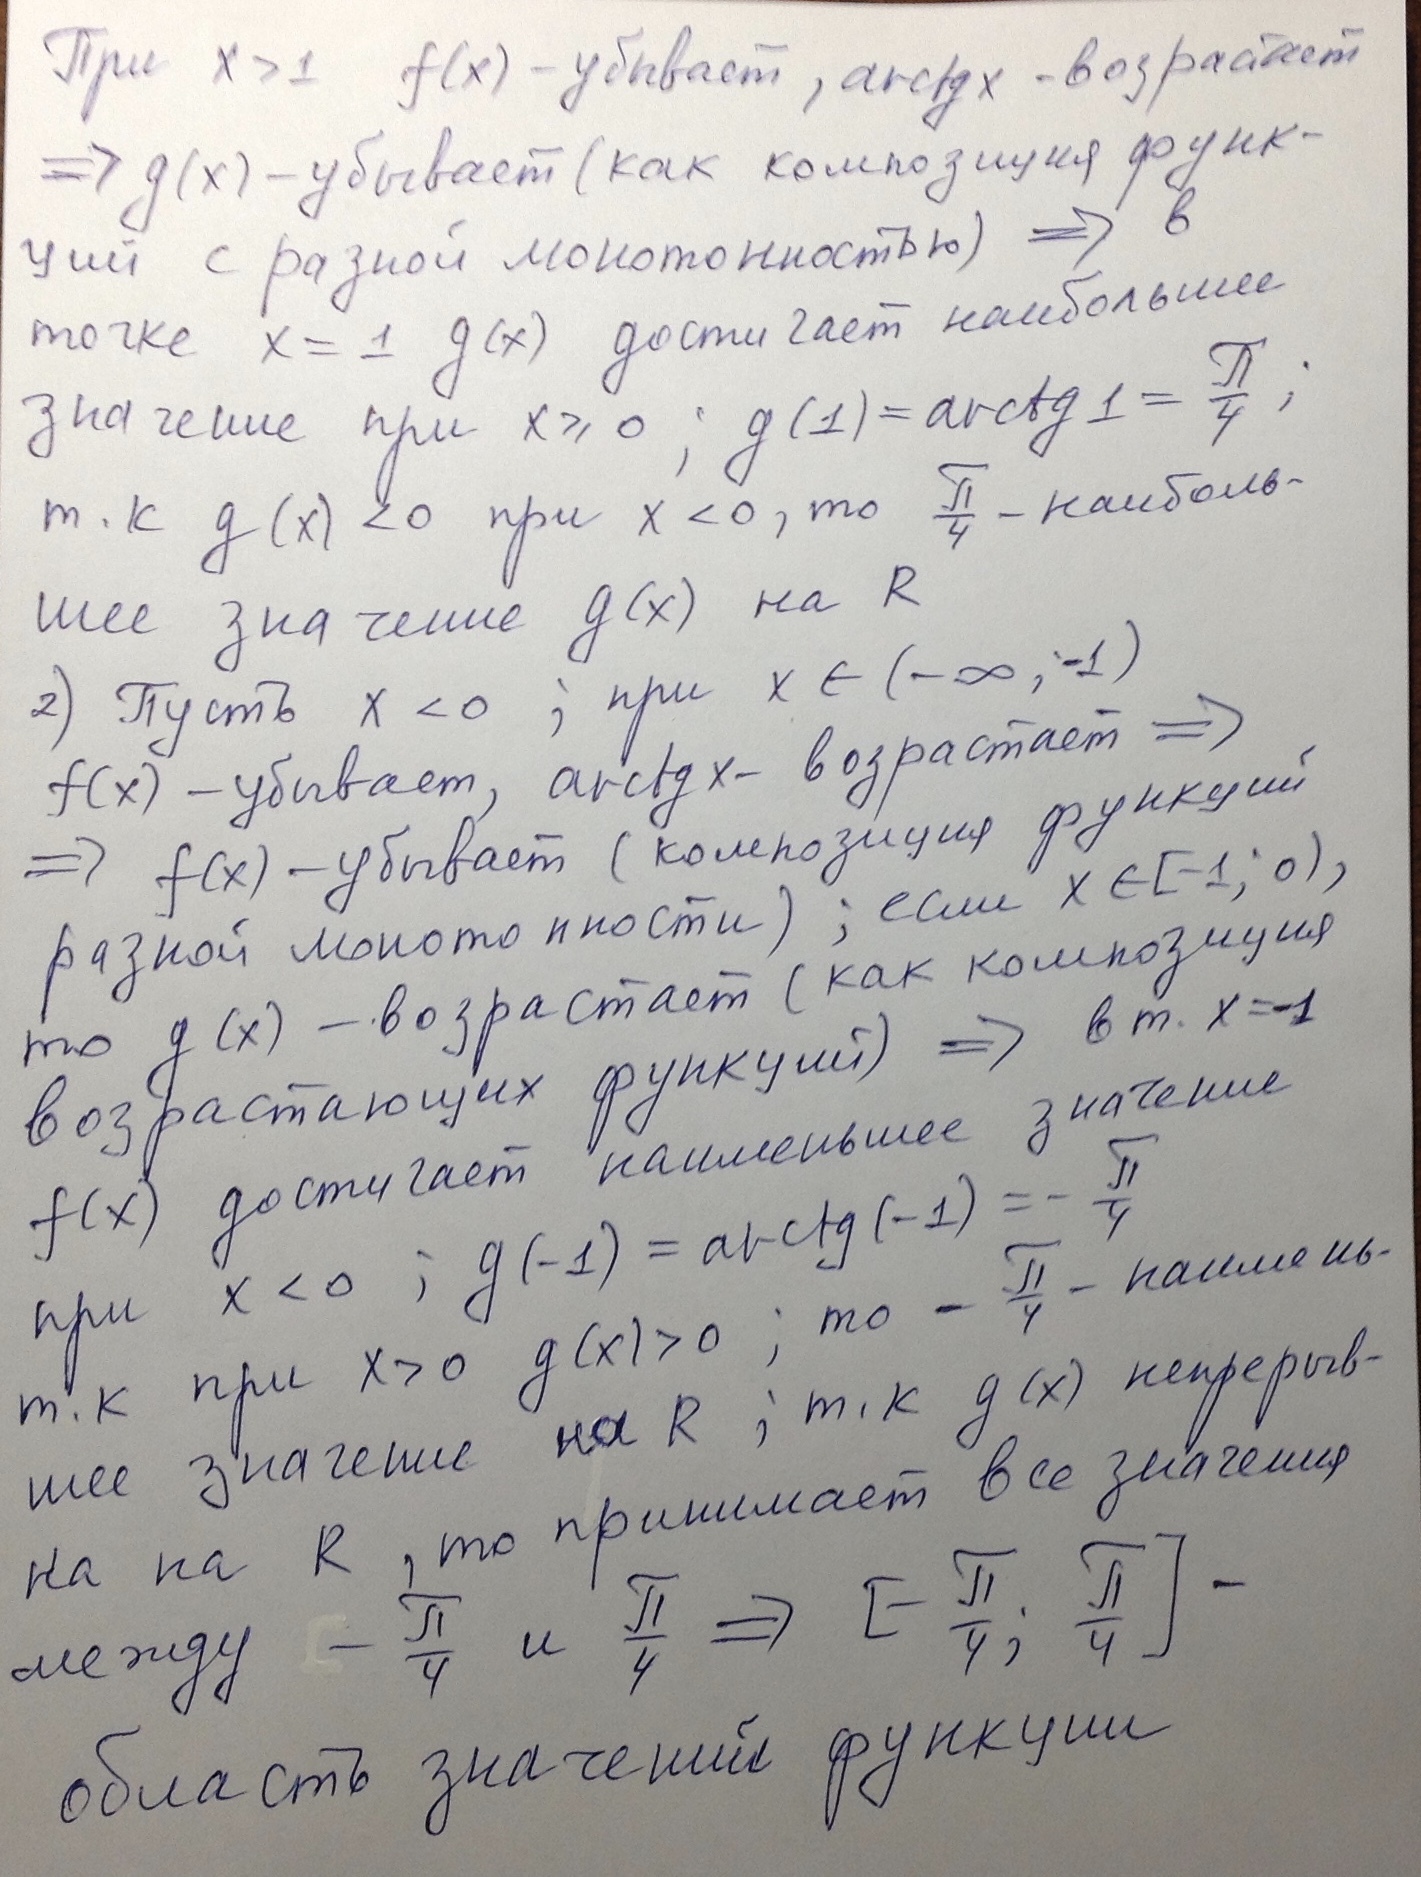 При x > 1 f(x) – убывает, arctg x – возрастает
⇒ g(x) – убывает (как композиция функ-
ций с разной монотонностью) ⇒ в
точке x = 1 g(x) достигает наибольшее
значение при x ⩾ 0 ; g(1) = arctg 1 = π/4 ;
т.к g(x) < 0 при x < 0, то π/4 – наиболь-
шее значение g(x) на R
2) Пусть x < 0 ; при x ∈ (-∞ ; -1)
f(x) – убывает, arctg x – возрастает ⇒
⇒ f(x) – убывает (композиция функций
разной монотонности) ; если x ∈ [-1; 0),
то g(x) – возрастает (как композиция
возрастающих функций) ⇒ в т. x = -1
f(x) достигает наименьшее значение
при x < 0 ; g(-1) = arctg(-1) = - π/4
т.к при x > 0 g(x) > 0 ; то - π/4 – наимень-
шее значение на R ; т.к g(x) непрерыв-
на на R, то принимает все значения
между - π/4 и π/4 ⇒ [- π/4; π/4] –
область значений функции